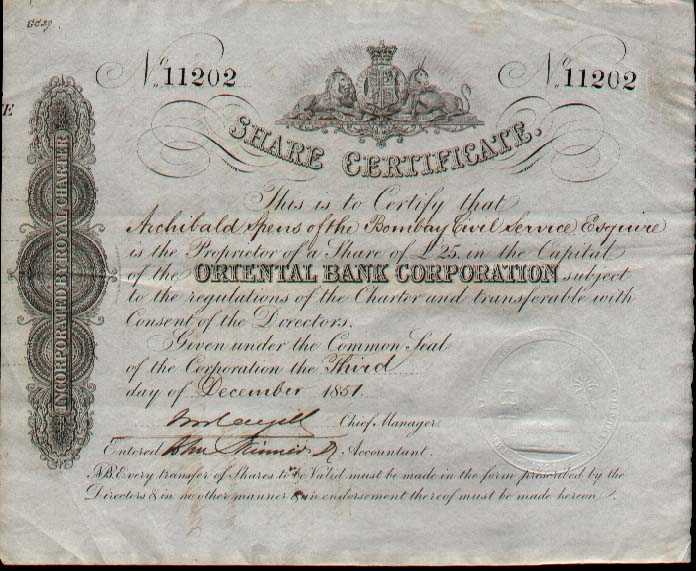 No. 11202
No. 11202
SHARE CERTIFICATE.
INCORPORATED BY ROYAL CHARTER
This is to Certify that
Archibald Spens of the Bombay Civil Service Esquire
is the Proprietor of a Share of £25. in the Capital
of the ORIENTAL BANK CORPORATION subject
to the regulations of the Charter and transferable with
Consent of the Directors.
Given under the Common Seal
of the Corporation the Third
day of December 1851.
Chief Manager.
Entered John Accountant.
N.B. Every transfer of Shares to be Valid must be made in the form prescribed by the
Directors & in no other manner & an endorsement thereof must be made hereon.